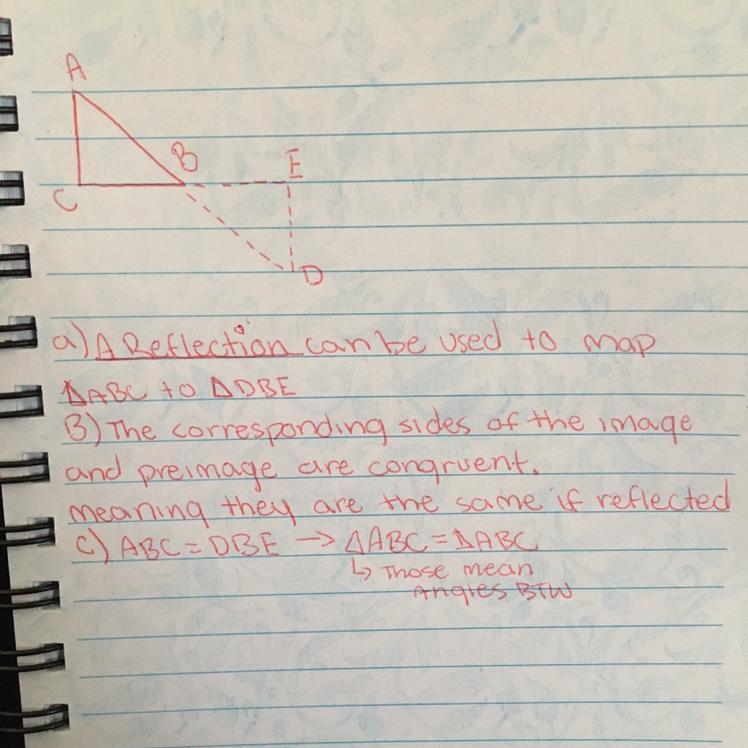 A
B
E
C
D
a) A Reflection can be used to map
ΔABC to ΔDBE
B) The corresponding sides of the image
and preimage are congruent.
meaning they are the same if reflected
C) ABC = DBE → ΔABC = ΔABC
↳ Those mean
Angles BTW